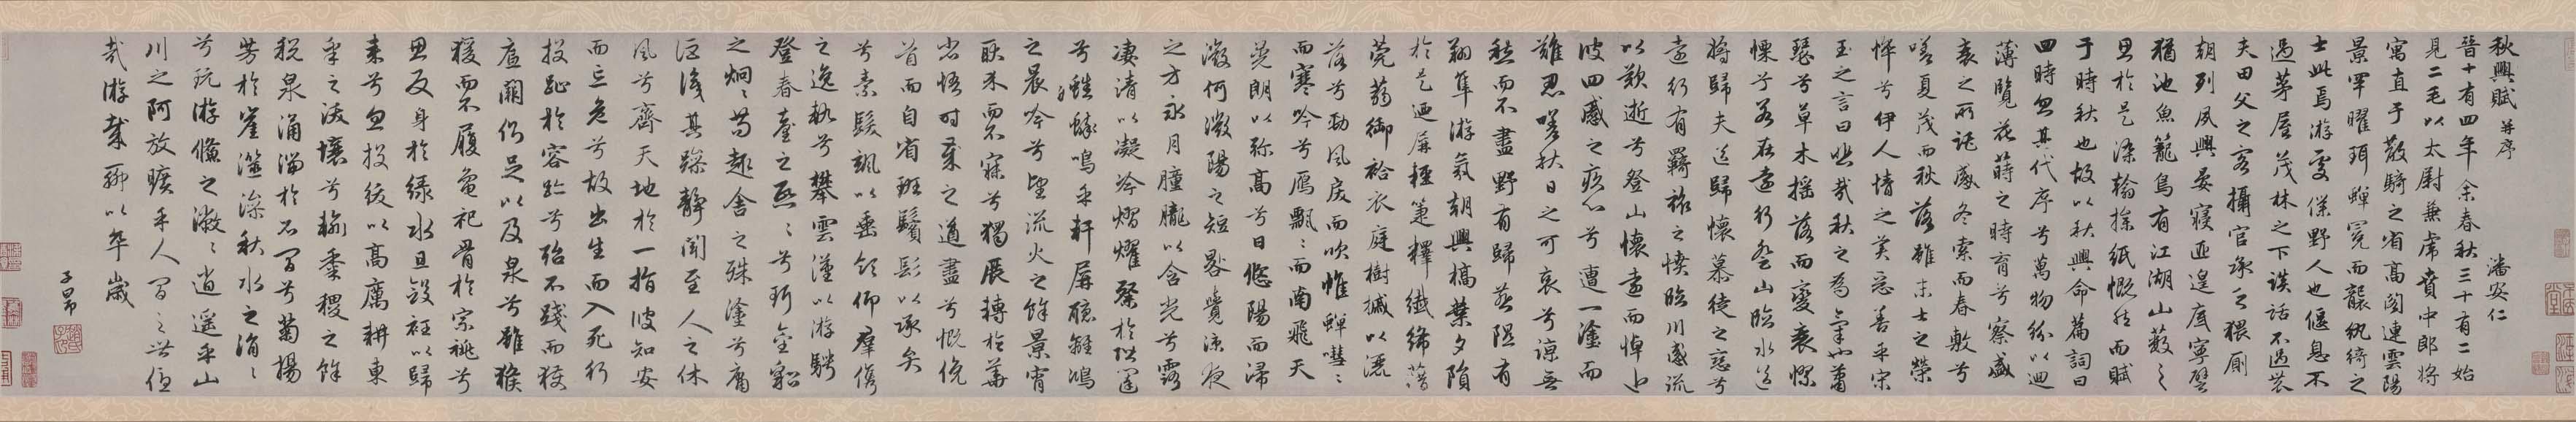 秋興賦 并序 潘安仁
晉十有四年余春秋三十有二始
見二毛以太尉兼虎賁中郎將
寓直于散騎之省高閣連雲陽
景罕曜珥蟬冕而襲紈綺之
士此焉游處僕野人也偃息不
過茅屋茂林之下談話不過農
夫田父之客攝官承乏猥廁
朝列夙興晏寢匪遑底寧譬
猶池魚籠鳥有江湖山藪之
思於是染翰操紙慨然而賦
于時秋也故以秋興命篇詞曰
四時忽其代序兮萬物紛以迴
薄覽花蒔之時育兮察盛
衰之所託感冬索而春敷兮
嗟夏茂而秋落雖末士之榮
悴兮伊人情之美惡善乎宋
玉之言曰悲哉秋之為氣也蕭
瑟兮草木搖落而變衰憭
慄兮若在遠行登山臨水送
將歸夫送歸懷慕徒之戀兮
遠行有羈旅之憤臨川感流
以歎逝兮登山懷遠而悼近
彼四慼之疚心兮遭一塗而
難忍嗟秋日之可哀兮諒無
愁而不盡野有歸燕隰有
翔隼游氛朝興槁葉夕隕
於是迺屏輕箑釋纖絺藉
莞蒻御袷衣庭樹摵以灑
落兮勁風戾而吹帷蟬嘒々
而寒吟兮雁飄々而南飛天
晃朗以彌高兮日悠陽而浸
微何微陽之短晷覺涼夜
之方永月朣朧以含光兮露
淒清以凝冷熠燿粲於階闥
兮蟋蟀鳴乎軒屏聽離鴻
之晨吟兮望流火之餘景宵
耿介而不寐兮獨展轉於華
省悟時歲之遒盡兮慨俛
首而自省斑鬢髟以承弁
兮素髮颯以垂領仰羣儁
之逸軌兮攀雲漢以游騁
登春臺之熙々兮珥金貂
之炯々苟趣舍之殊塗兮庸
詎識其躁靜聞至人之休
風兮齊天地於一指彼知安
而忘危兮故出生而入死行
投趾於容跡兮殆不踐而獲
底闕側足以及泉兮雖猴
猨而不履龜祀骨於宗祧兮
思反身於綠水且斂衽以歸
來兮忽投紱以高厲耕東
皋之沃壤兮輸黍稷之餘
稅泉涌湍於石間兮菊揚
芳於崖澨澡秋水之涓々
兮玩游鯈之潎々逍遙乎山
川之阿放曠乎人間之世優
哉游哉聊以卒歲
子昂